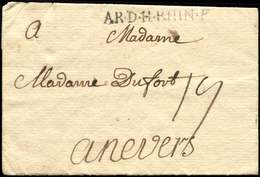 AR.D.H.RHIN.P
A Madame
Madame Dufort
anevers